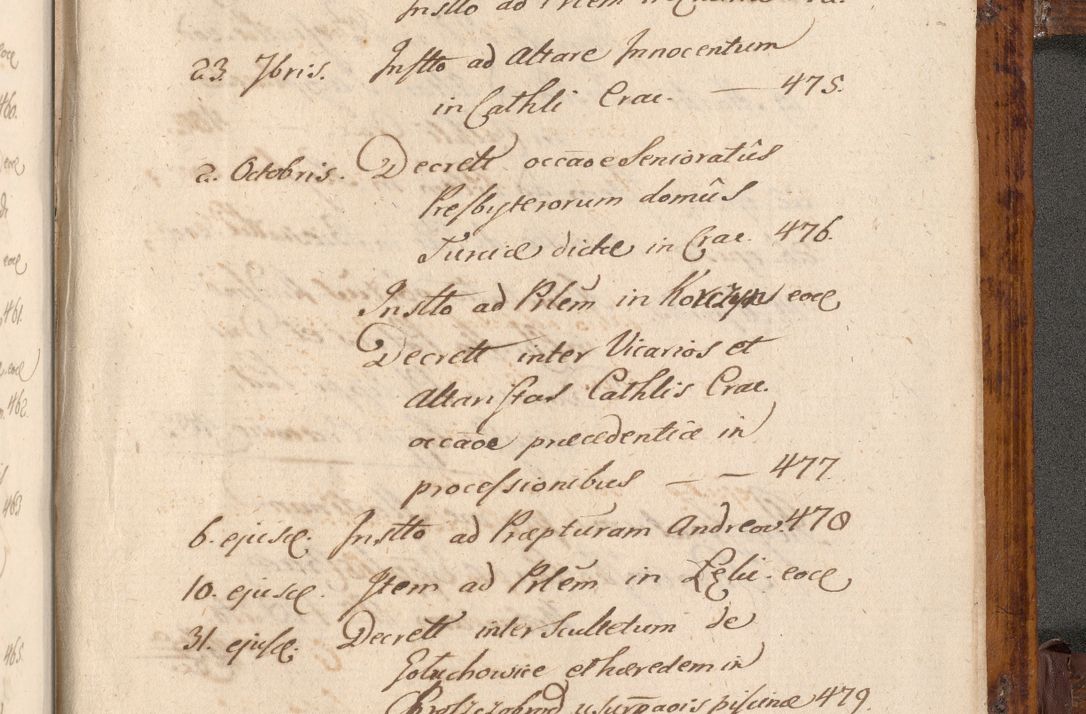 Instto ad Prlem in
23. 7bris. Instto ad Altare Innocentum
in Cathli Crac. — 475.
2. Octobris. Decrett occāoe Senioratûs
Presbyterorum domûs
Turciæ dictæ in Crac. 476.
Instto ad Prlēm in Korczyn eoɗ
Decrett inter Vicarios et
Altaristas Cathlis Crac.
occāoe præcedentiæ in
processionibus — — 477.
6. ejusɗ. Instto ad Præpturam Andreov. 478
10. ejusɗ. Item ad Prlēm in Lelu. eoɗ
31. ejusɗ. Decrett inter Scultetum de
Goluchowice et hæredem in
usurpāois piscinæ 479.
460.
461.
462.
463
465.